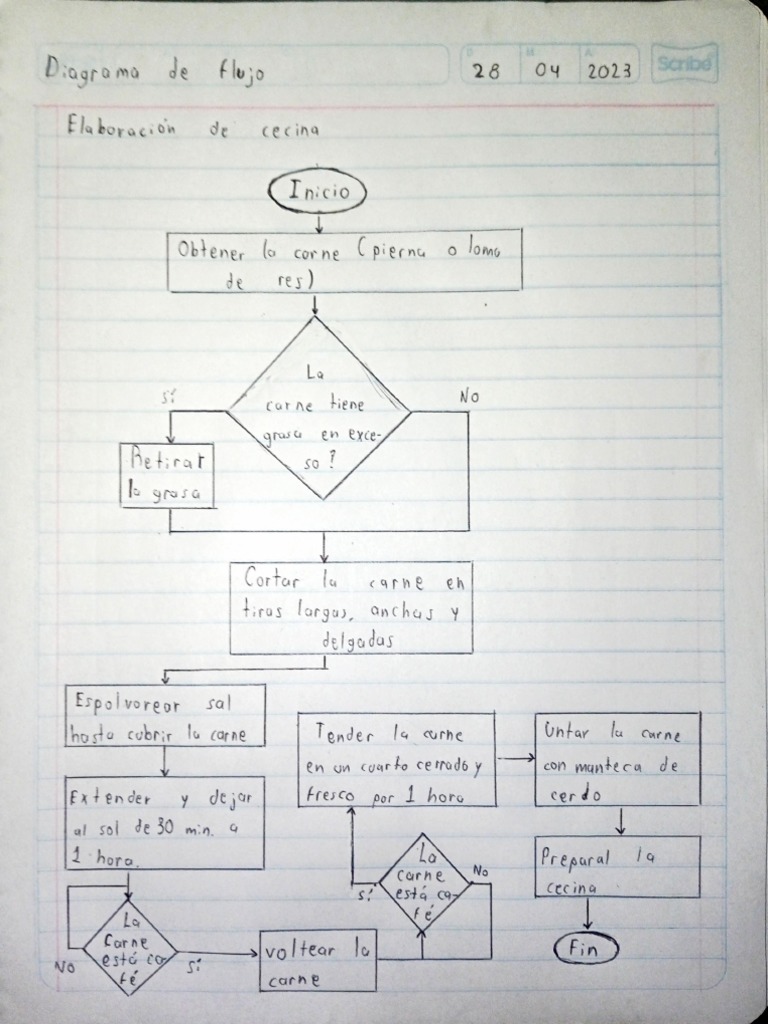 Diagrama de flujo
D M A
28 04 2023
Scribe
Elaboración de cecina
Inicio
Obtener la carne (pierna o lomo
de res)
La
carne tiene
grasa en exce-
so?
Sí
No
Retirar
la grasa
Cortar la carne en
tiras largas, anchas y
delgadas
Espolvorear sal
hasta cubrir la carne
Extender y dejar
al sol de 30 min. a
1 hora.
La
Carne
está ca-
fé
No
Sí
voltear la
carne
La
carne
está ca-
fé
Sí
No
Tender la carne
en un cuarto cerrado y
fresco por 1 hora
Untar la carne
con manteca de
cerdo
Preparal la
cecina
Fin